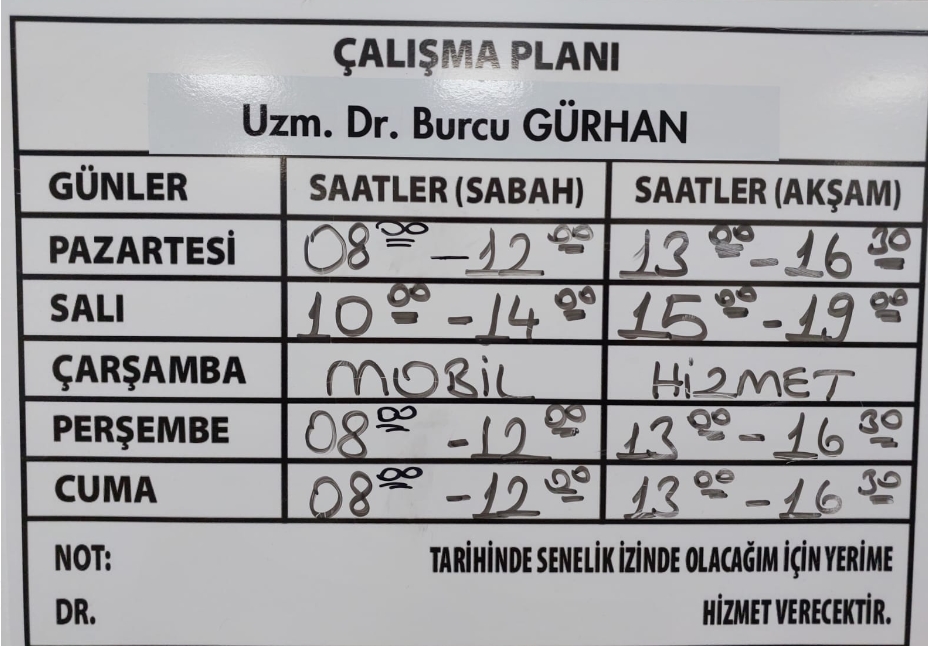 ÇALIŞMA PLANI
Uzm. Dr. Burcu GÜRHAN
GÜNLER SAATLER (SABAH) SAATLER (AKŞAM)
PAZARTESİ 08 00 - 12 00 13 00 - 16 30
SALI 10 00 - 14 00 15 00 - 19 00
ÇARŞAMBA MOBİL HİZMET
PERŞEMBE 08 00 - 12 00 13 00 - 16 30
CUMA 08 00 - 12 00 13 00 - 16 30
NOT: TARİHİNDE SENELİK İZİNDE OLACAĞIM İÇİN YERİME
DR. HİZMET VERECEKTİR.